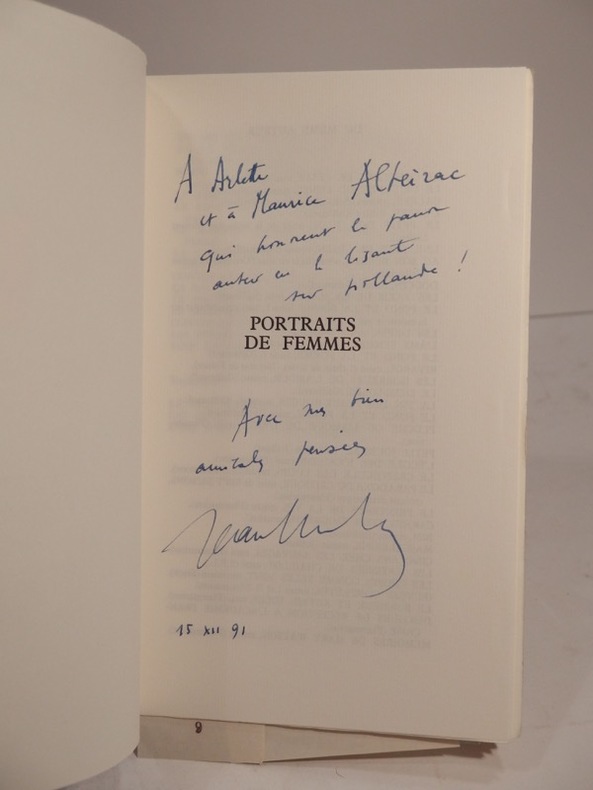 A Arlette
et à Maurice Alteirac
qui honorent le pauvre
auteur en le lisant
sur hollande !
PORTRAITS
DE FEMMES
Avec mes bien
amicales pensées
15 XII 91
9